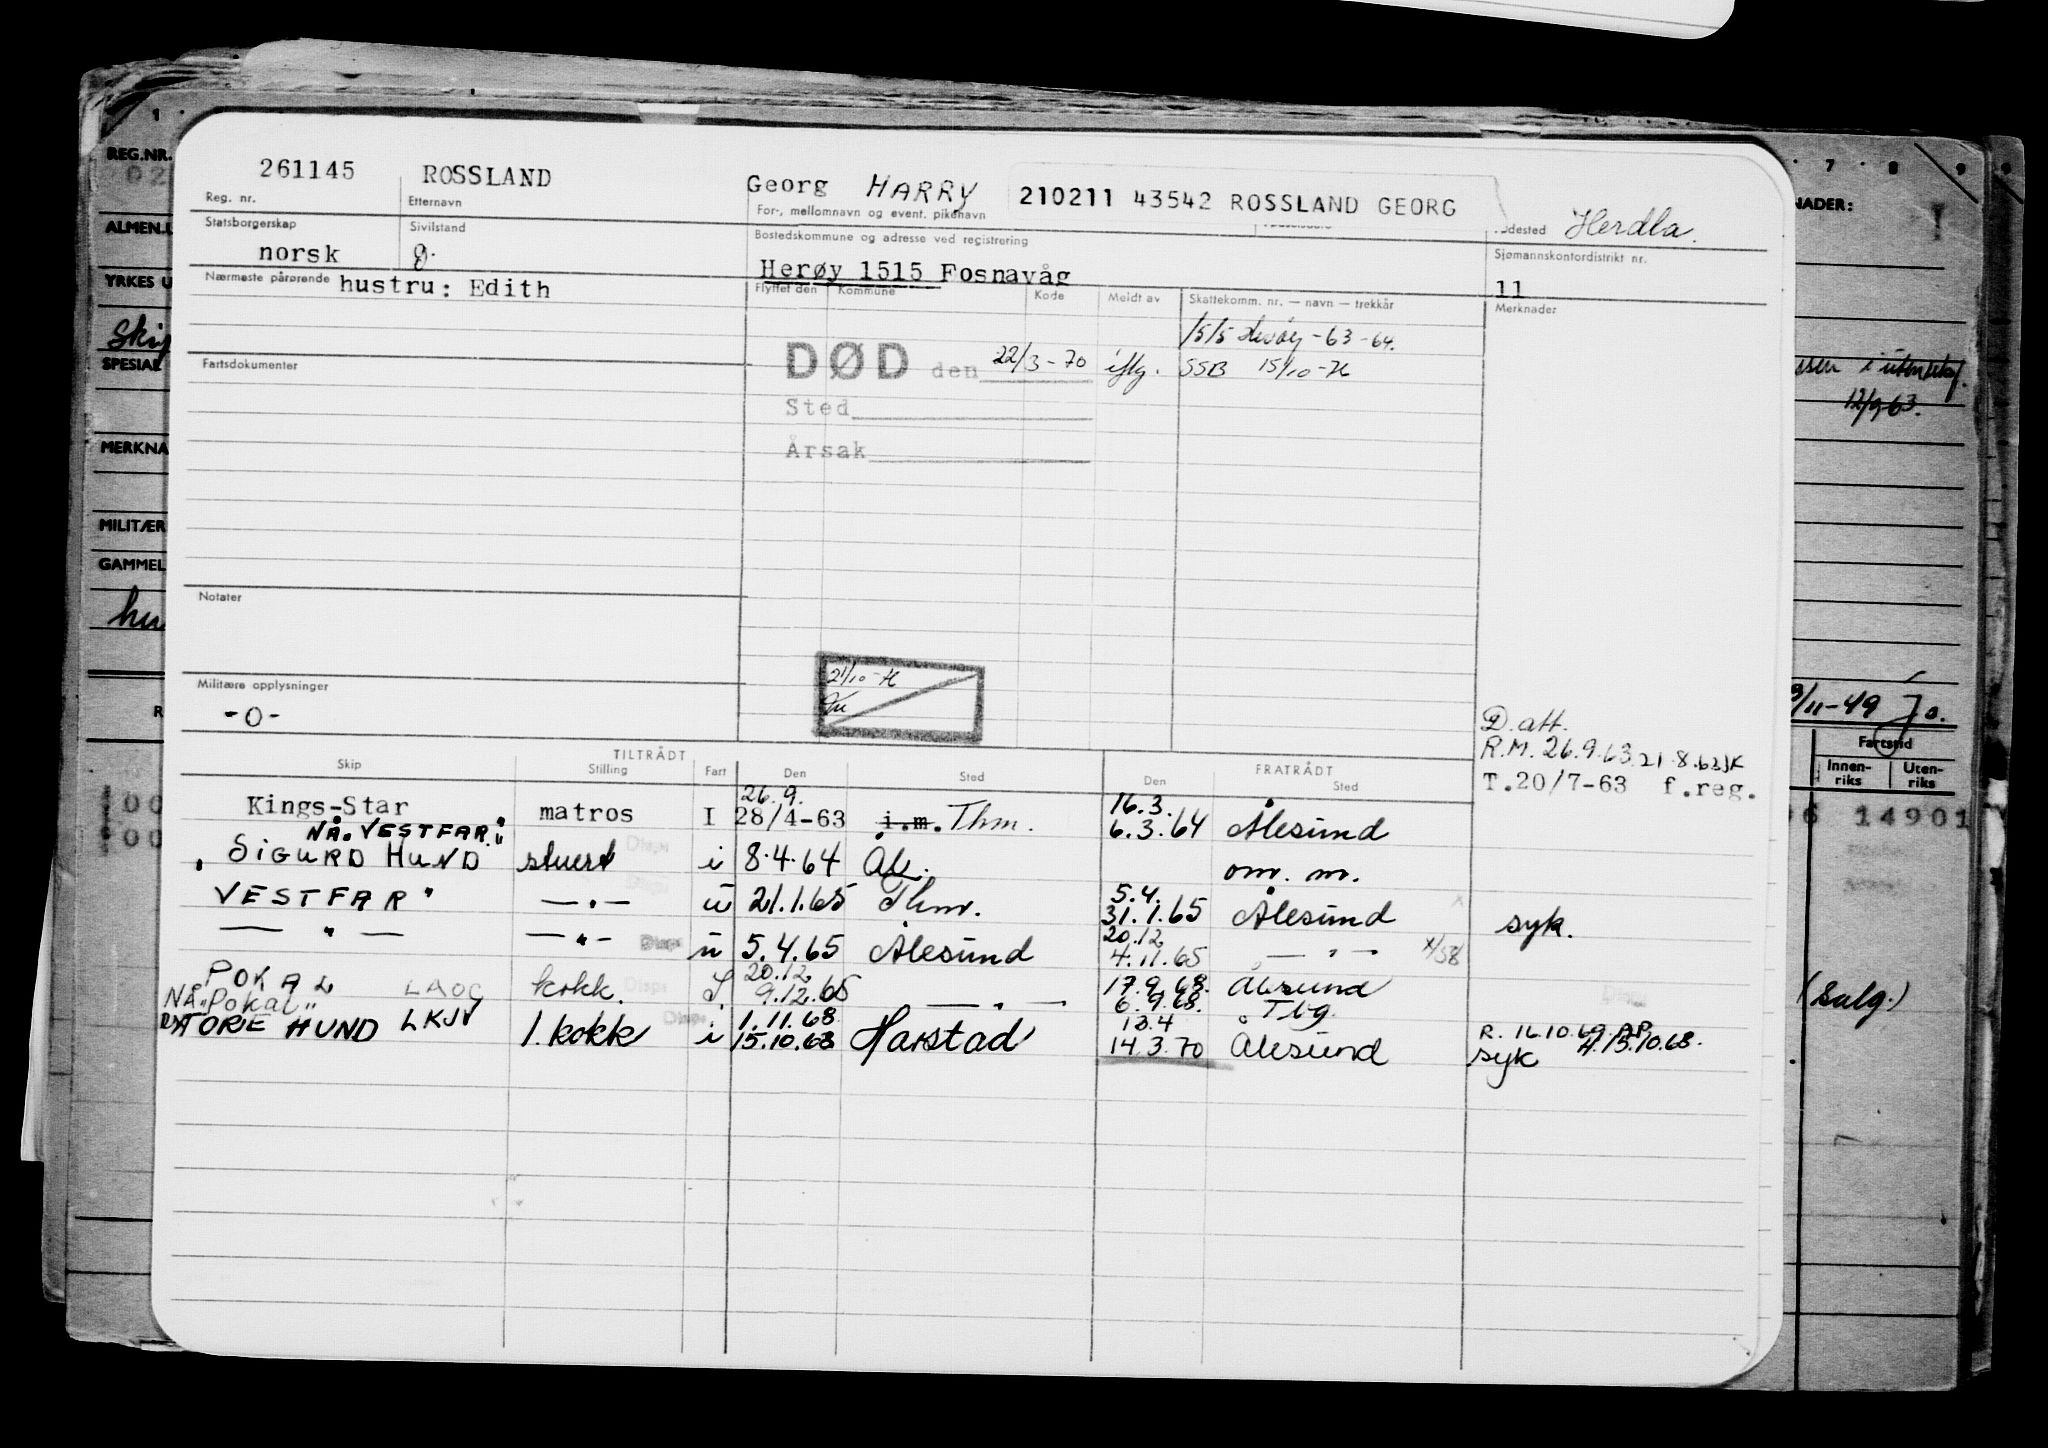 261145 ROSSLAND Georg HARRY 210211 43542 ROSSLAND GEORG Herdla.
Reg. nr. Etternavn For-, mellomnavn og event. pikenavn
Statsborgerskap Sivilstand Bostedskommune og adresse ved registrering Sjømannskontordistrikt nr.
norsk g. Herøy 1515 Fosnavåg 11
Nærmeste pårørende hustru: Edith Flyttet den Kommune Kode Meldt av Skattekomm. nr. — navn — trekkår Merknader
1515 Herøy - 63 - 64.
Fartsdokumenter DØD den 22/3-70 iflg. SSB 15/10-
Sted
Årsak
Notater
Militære opplysninger 21/10
-0-
D. att.
R.M. 26.9.63. 21.8.63
T.20/7-63 f.reg.
TILTRÅDT FRATRÅDT
Skip Stilling Fart Den Sted Den Sted
26.9. 16.3.
Kings-Star matros I 28/4-63 i.m. Thm. 6.3.64 Ålesund
NÅ "VESTFAR"
"SIGURD HUND" stuert i 8.4.64 Ål. om. m.
5.4.
VESTFAR" — " — u 21.1.65 Thm. 31.1.65 Ålesund syk.
20.12
— " — — " — u 5.4.65 Ålesund 4.11.65 — " —
20.12 17.9.68.
"POKAL LAOG kokk. 9.12.65 — " — 6.9.68. Ålesund
NÅ "Pokal" Tbg.
1.11.68 13.4 R. 16.10.69
TORE HUND LKJV 1. kokk i 15.10.68 Harstad 14.3.70 Ålesund syk 15.10.68.
REG.NR.
ALMEN.
YRKES U
Skip
SPESIAL
MERKNA
MILITÆR
GAMMEL
hu
1 7 8 9
NADER:
12/9 63.
/11-49 Jo.
Fartstid
Innen-riks Uten-riks
14901
(Salg.)